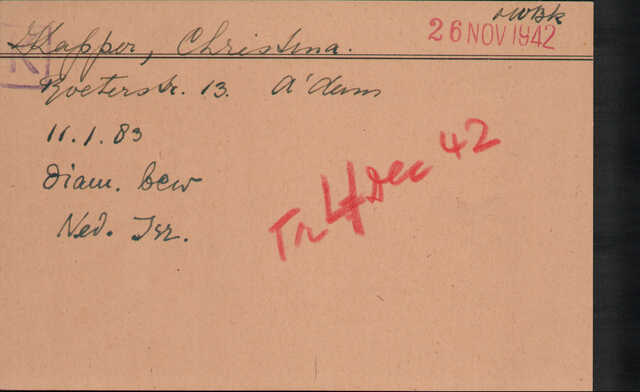 Kapper, Christina.
26 NOV 1942
Roeterstr. 13. A'dam
11.1.83
Diam. bew
Ned. Isr.
Tr 4 Dec 42